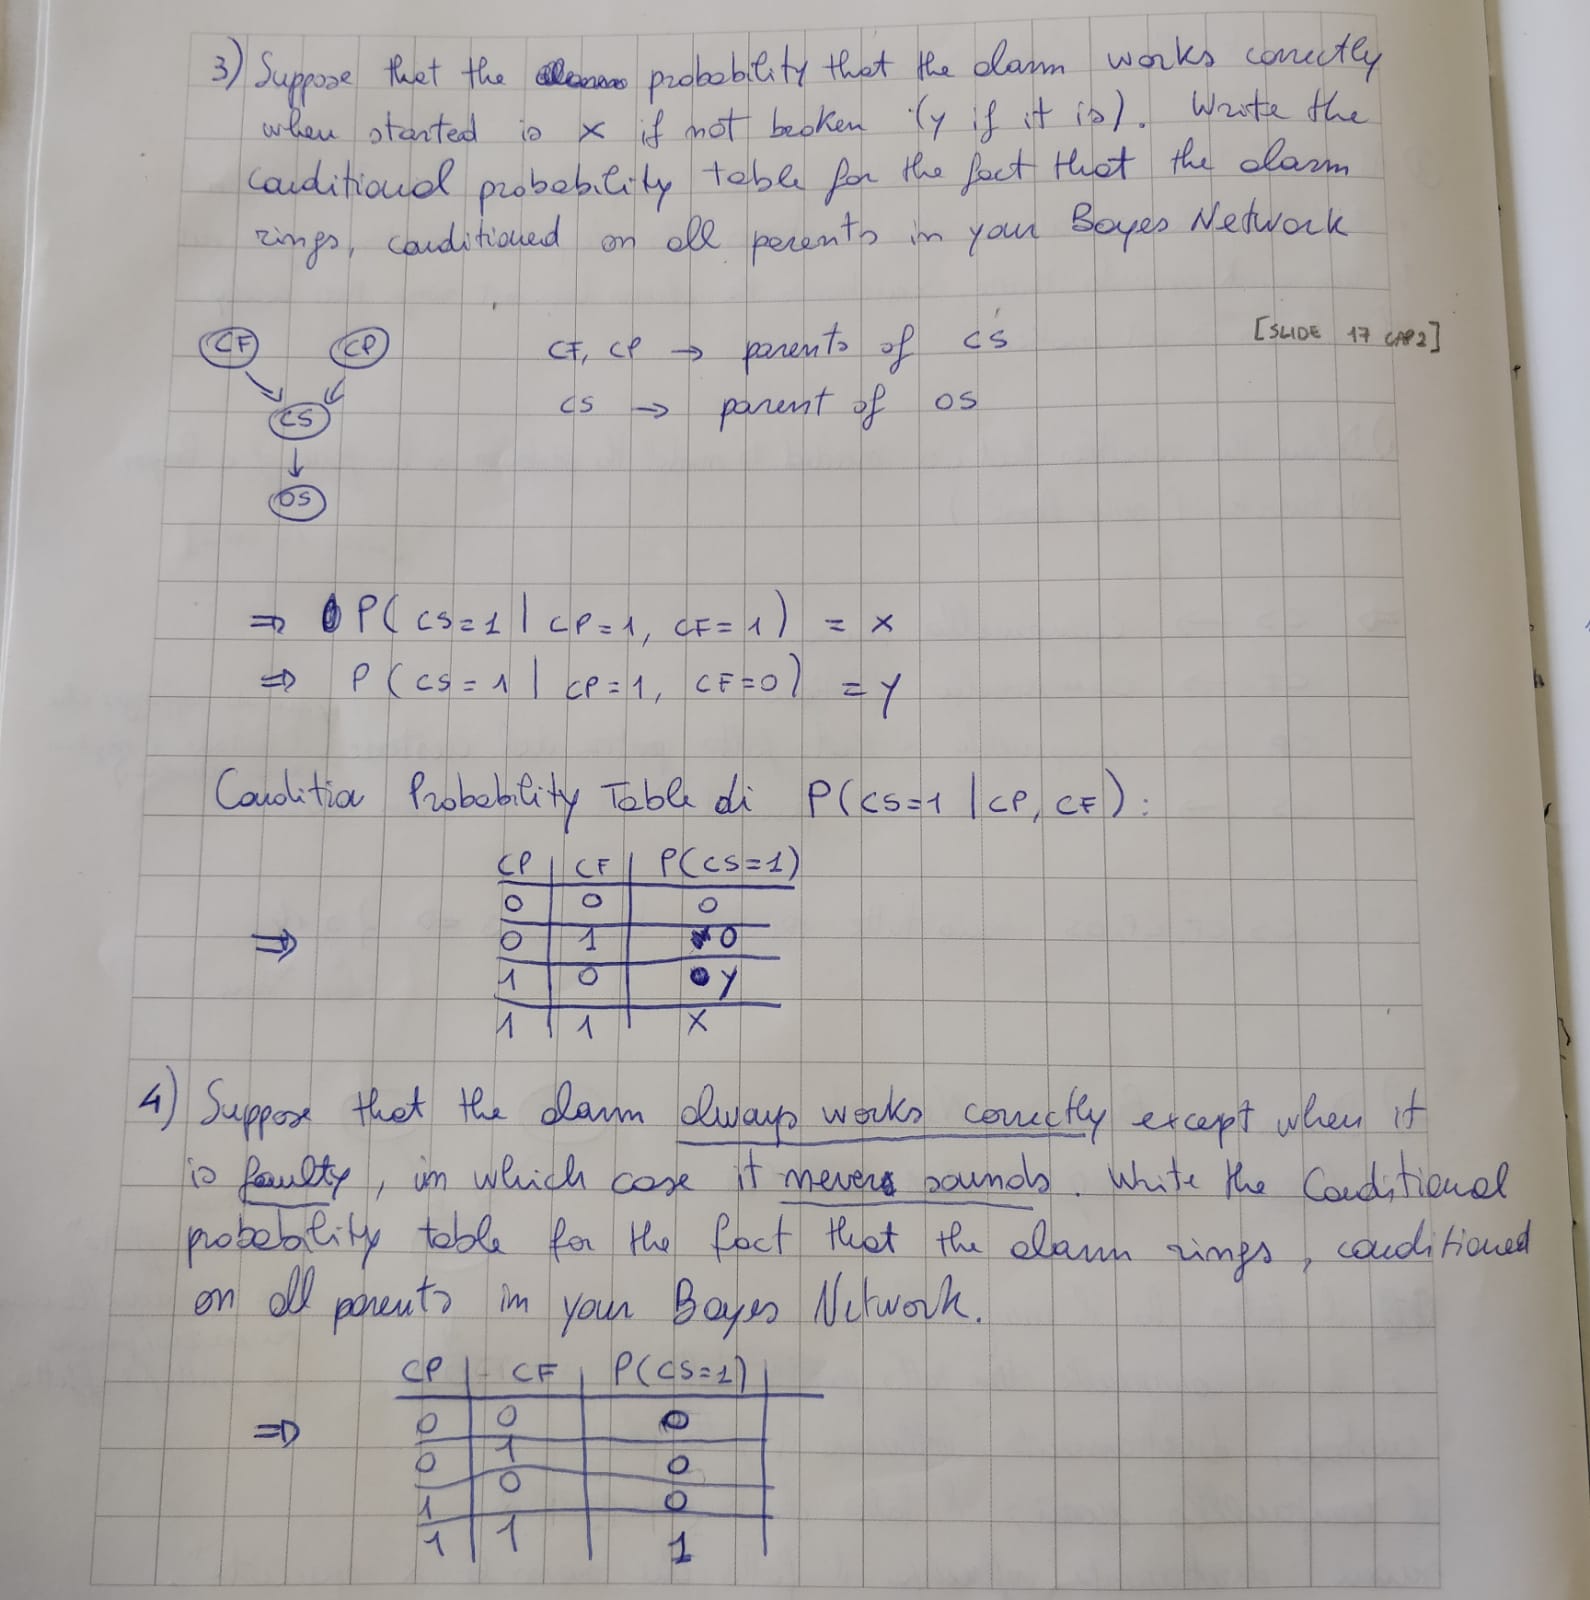 3) Suppose that the probability that the alarm works correctly
when started is x if not broken (y if it is). Write the
conditional probability table for the fact that the alarm
rings, conditioned on all parents in your Bayes Network
CF CP CF, CP → parents of CS [SLIDE 17 CAP2]
CS CS → parent of OS
OS
⇒ P(CS=1 | CP=1, CF=1) = x
⇒ P(CS=1 | CP=1, CF=0) = y
Condition Probability Table di P(CS=1 | CP, CF):
CP | CF | P(CS=1)
0 | 0 | 0
⇒ 0 | 1 | 0
1 | 0 | y
1 | 1 | x
4) Suppose that the alarm always works correctly except when it
is faulty, in which case it never sounds. Write the Conditional
probability table for the fact that the alarm rings, conditioned
on all parents in your Bayes Network.
CP | CF | P(CS=1)
⇒ 0 | 0 | 0
0 | 1 | 0
1 | 0 | 0
1 | 1 | 1